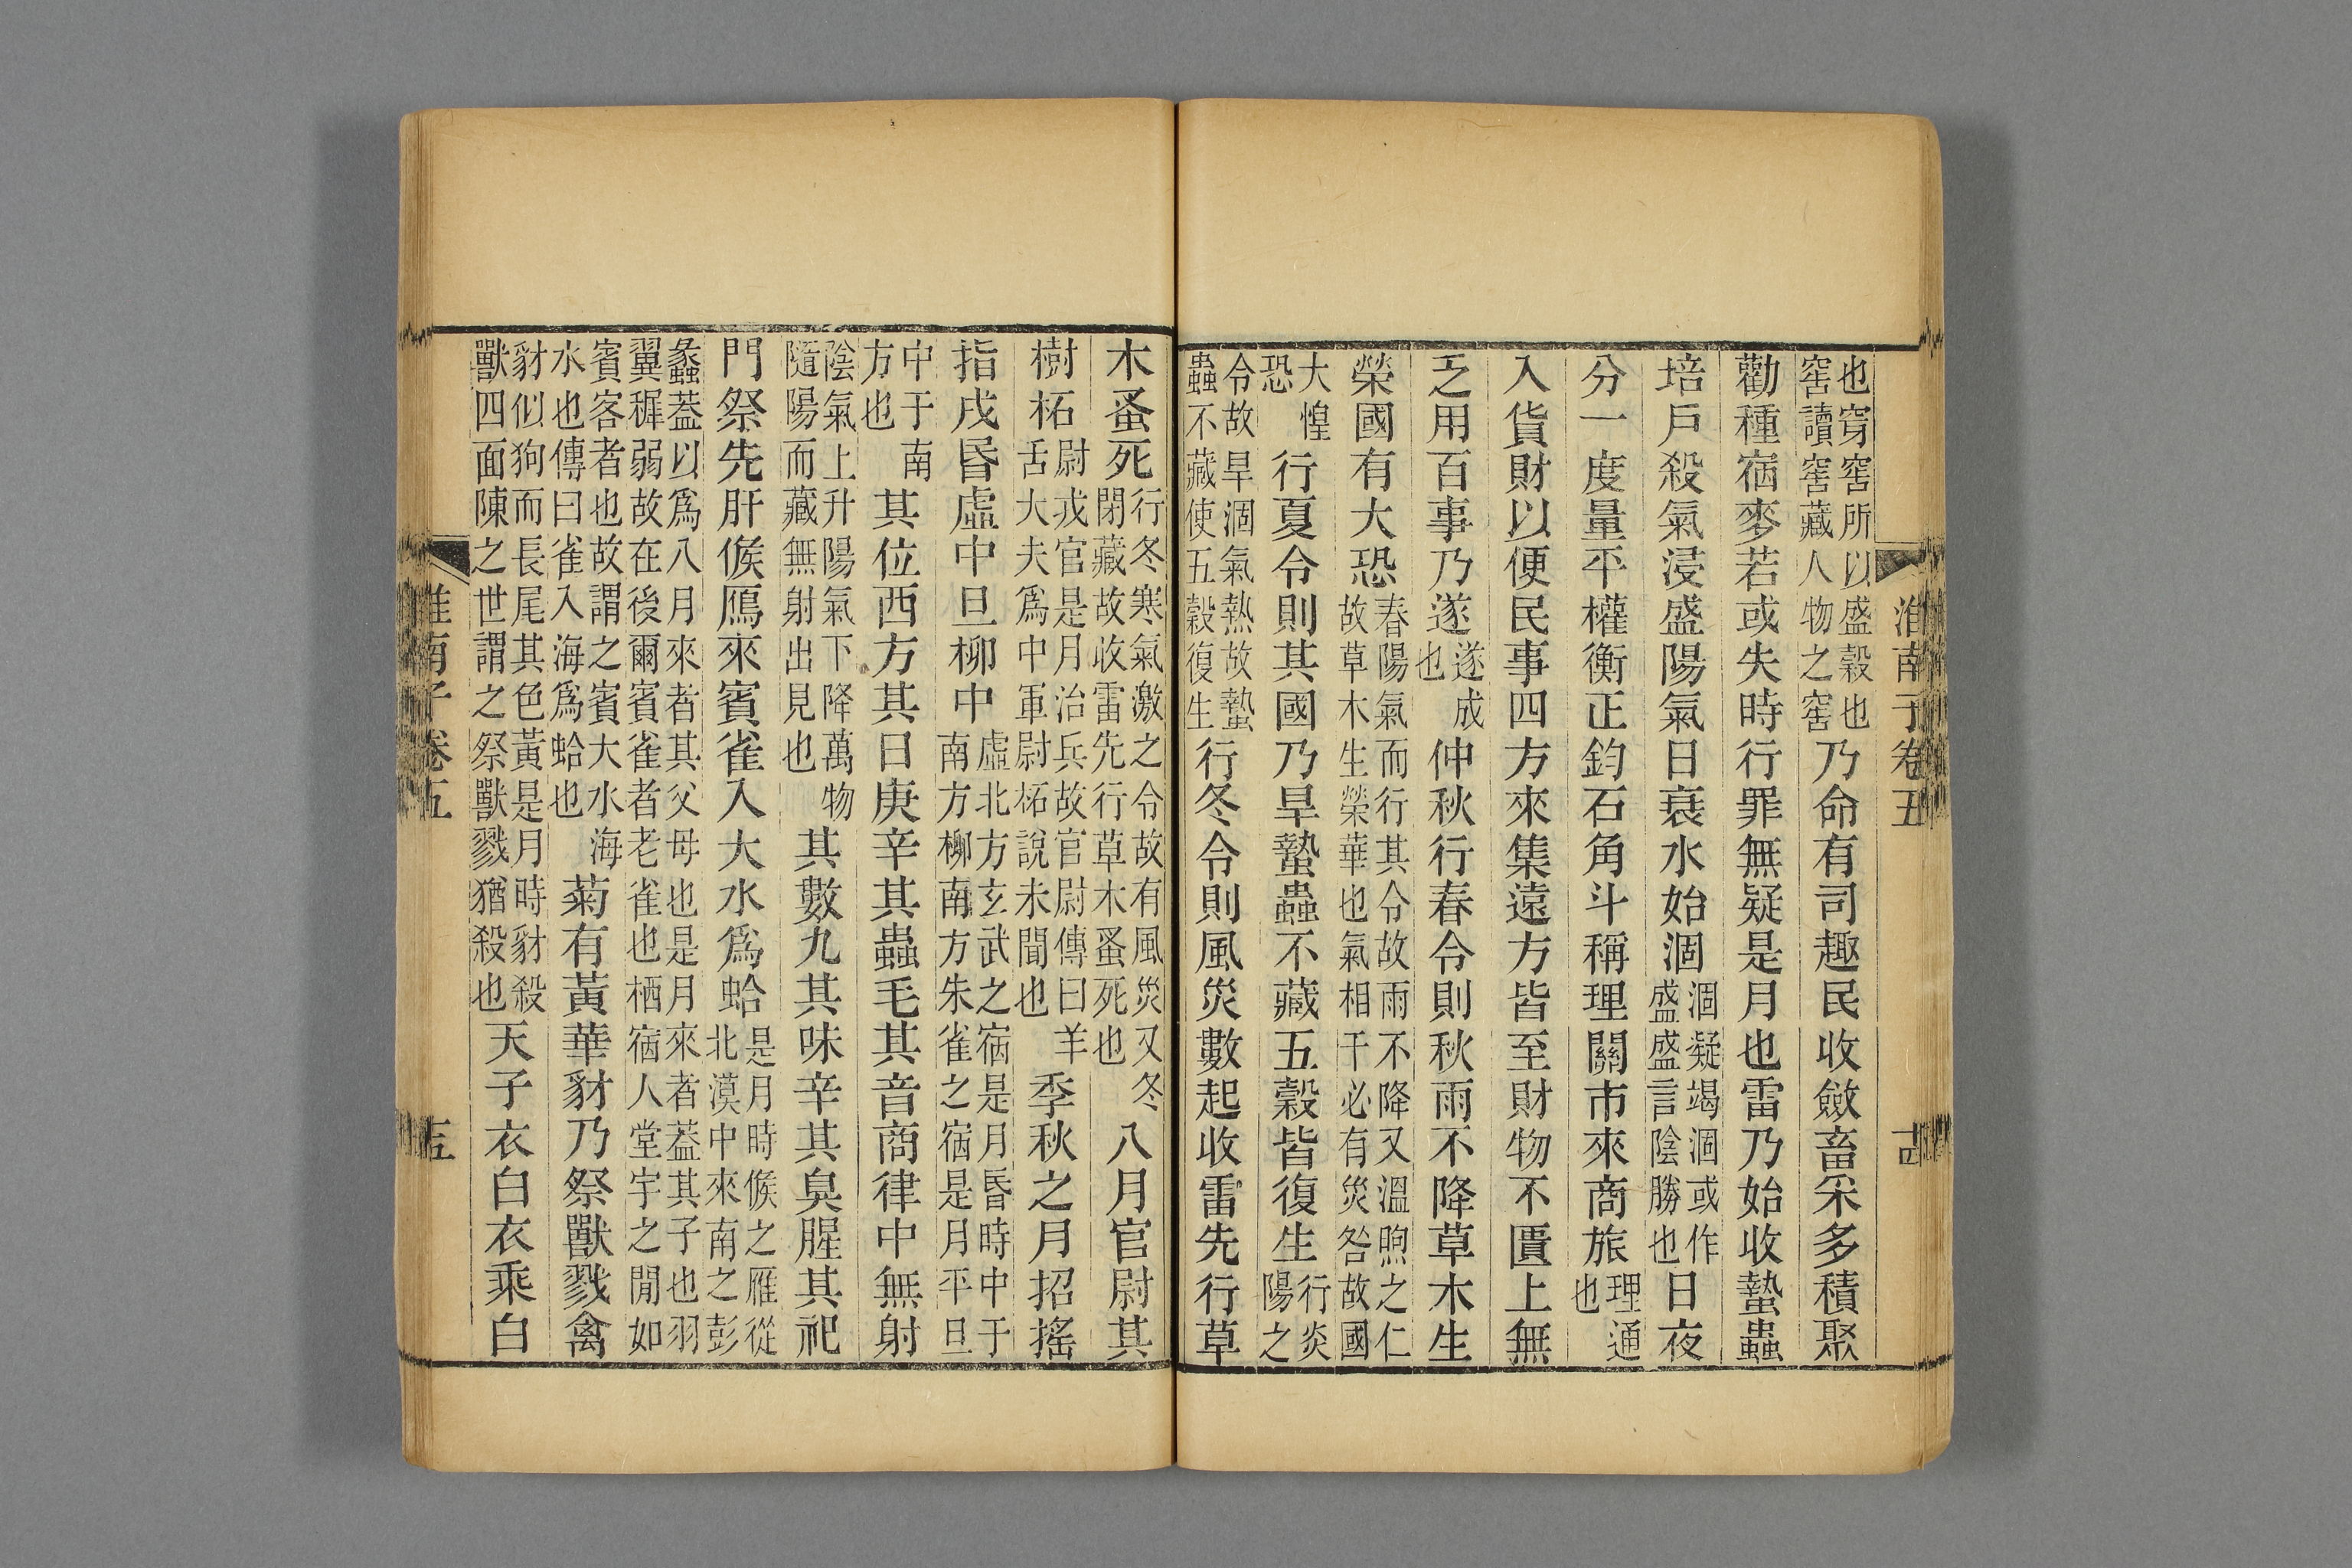 淮南子卷五
十四
也穿窖所以盛穀也窖讀窖藏人物之窖乃命有司趣民收斂畜采多積聚
勸種宿麥若或失時行罪無疑是月也雷乃始收蟄蟲
培戶殺氣浸盛陽氣日衰水始涸涸凝竭涸或作盛盛盛言陰勝也日夜
分一度量平權衡正鈞石角斗稱理關市來商旅理通也
入貨財以便民事四方來集遠方皆至財物不匱上無
乏用百事乃遂遂成也仲秋行春令則秋雨不降草木生
榮國有大恐春陽氣而行其令故雨不降又溫煦之仁故草木生榮華也氣相干必有災咎故國
大惶恐行夏令則其國乃旱蟄蟲不藏五穀皆復生行炎陽之
令故旱涸氣熱故蟄蟲不藏使五穀復生行冬令則風災數起收雷先行草
木蚤死行冬寒氣激之令故有風災又冬閉藏故收雷先行草木蚤死也八月官尉其
樹柘尉戎官是月治兵故官尉傳曰羊舌大夫爲中軍尉柘說未聞也季秋之月招搖
指戌昏虛中旦柳中虛北方玄武之宿是月昏時中于南方柳南方朱雀之宿是月平旦
中于南方也其位西方其日庚辛其蟲毛其音商律中無射
陰氣上升陽氣下降萬物隨陽而藏無射出見也其數九其味辛其臭腥其祀
門祭先肝候鴈來賓雀入大水爲蛤是月時候之雁從北漠中來南之彭
蠡蓋以爲八月來者其父母也是月來者蓋其子也羽翼稺弱故在後爾賓雀者老雀也栖宿人堂宇之閒如
賓客者也故謂之賓大水海水也傳曰雀入海爲蛤也菊有黃華豺乃祭獸戮禽
豺似狗而長尾其色黃是月時豺殺獸四面陳之世謂之祭獸戮猶殺也天子衣白衣乘白
淮南子卷五
十五